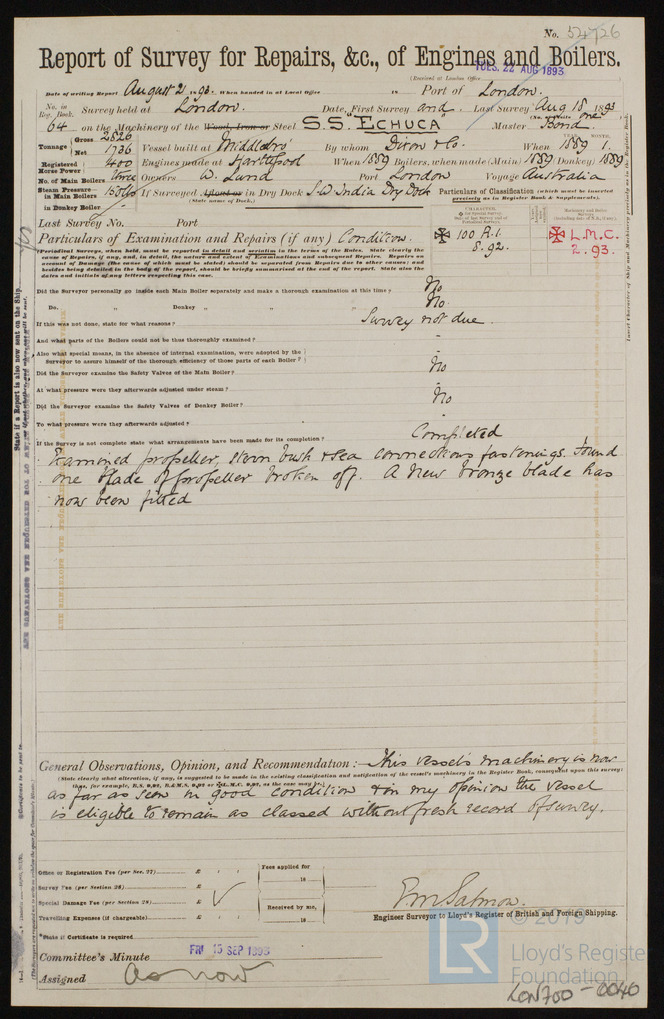 No. 54726
Report of Survey for Repairs, &c., of Engines and Boilers.
TUES. 22 AUG 1893
(Received at London Office
Date of writing Report August 21 1893. When handed in at Local Office 18 Port of London.
No. in Reg. Book. Survey held at London. Date, First Survey and Last Survey Aug 18 1893
(No. of Visits one)
64 on the Machinery of the Wood, Iron or Steel S.S. "ECHUCA" Master Bond.
Tonnage Gross 2826 Net 1736 Vessel built at Middlesbro By whom Dixon & Co. When YEAR. 1889 MONTH. 1.
Registered Horse Power 400 Engines made at Hartlepool When 1889 Boilers, when made (Main) 1889 (Donkey) 1889
No. of Main Boilers three Owners W. Lund Port London Voyage Australia
Steam Pressure in Main Boilers 150 lbs If Surveyed Afloat or in Dry Dock S.W. India Dry Dock
(State name of Dock.)
in Donkey Boiler
Particulars of Classification (which must be inserted precisely as in Register Book & Supplements).
Last Survey No. Port
CHARACTER.
Machinery and Boiler Surveys
Particulars of Examination and Repairs (if any) Condition.
✠ 100 A.1. 8.92.
✠ L.M.C. 2.93.
(Periodical Surveys, when held, must be reported in detail and seriatim in the terms of the Rules. State clearly the
cause of Repairs, if any, and, in detail, the nature and extent of Examinations and subsequent Repairs. Repairs on
account of Damage (the cause of which must be stated) should be separated from Repairs due to other causes; and
besides being detailed in the body of the report, should be briefly summarised at the end of the report. State also the
dates and initials of any letters respecting this case.
Did the Surveyor personally go inside each Main Boiler separately and make a thorough examination at this time? No
Do. " Donkey " " " No.
If this was not done, state for what reasons? Survey not due.
And what parts of the Boilers could not be thus thoroughly examined? -
Also what special means, in the absence of internal examination, were adopted by the
Surveyor to assure himself of the thorough efficiency of those parts of each Boiler? -
Did the Surveyor examine the Safety Valves of the Main Boiler? No
At what pressure were they afterwards adjusted under steam? -
Did the Surveyor examine the Safety Valves of Donkey Boiler? No
To what pressure were they afterwards adjusted? -
If the Survey is not complete state what arrangements have been made for its completion? Completed
Examined propeller, stern bush & sea connections fastenings. Found
one blade of propeller broken off. A new bronze blade has
now been fitted
General Observations, Opinion, and Recommendation:— This vessel's machinery is now
(State clearly what alteration, if any, is suggested to be made in the existing classification and notification of the vessel's machinery in the Register Book, consequent upon this survey:
as far as seen in good condition & in my opinion the vessel
is eligible to remain as classed without fresh record of survey.
Office or Registration Fee (per Sec. 27) £ : :
Survey Fee (per Section 28) £
Special Damage Fee (per Section 28) £ ✓
Travelling Expenses (if chargeable) £ : :
Fees applied for
18
Received by me,
18
P. M. Salmon.
Engineer Surveyor to Lloyd's Register of British and Foreign Shipping.
*State if Certificate is required
Committee's Minute FRI 15 SEP 1893
Assigned as now
LR
© 2019
Lloyd's Register
Foundation
LON700-0040